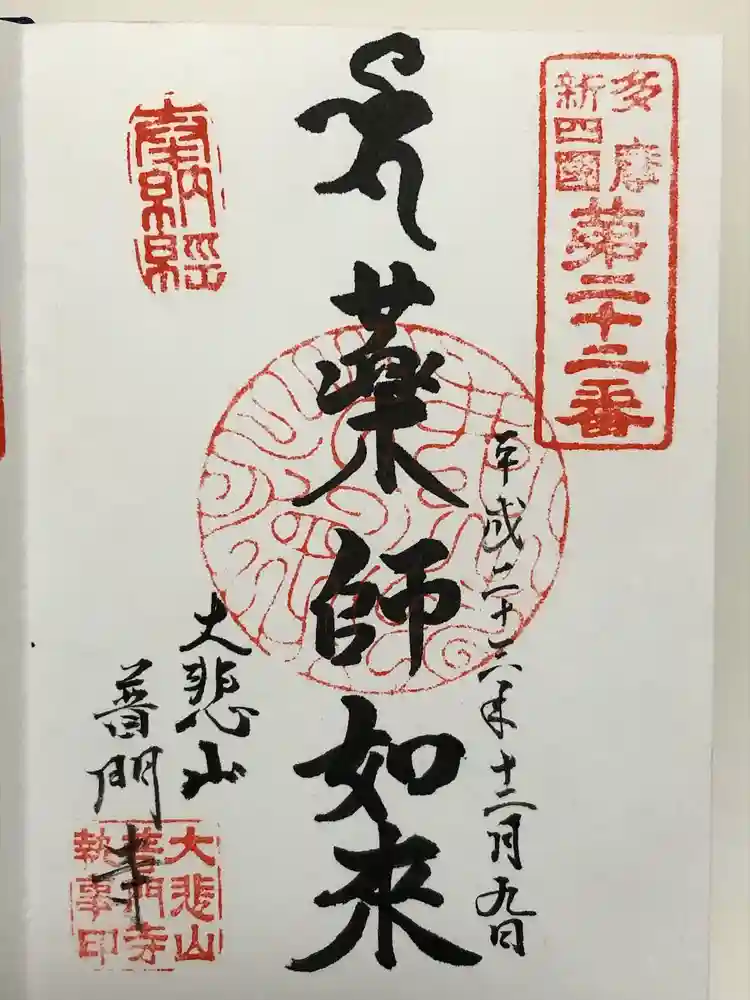 多摩
新四國
第二十二番
平成二十六年十二月九日
薬師如来
奉納経
大悲山
普門寺
大悲山
普門寺
執事印